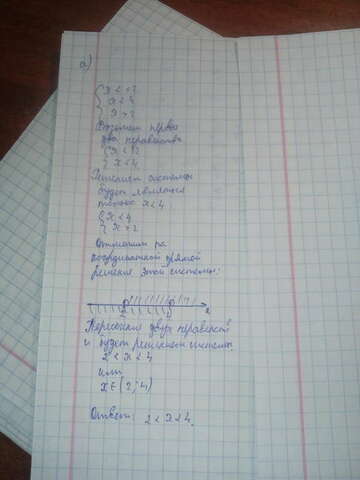 а)
x < 4
x > 2
Возьмем первые
два неравенства
x < 4
Решением системы
будет являться
только x < 4
{ x < 4
{ x > 2
Отметим на
координатной прямой
решение этой системы:
2 4 x
Пересечение двух неравенств
и будет решением системы.
2 < x < 4
или
x ∈ (2; 4)
Ответ: 2 < x < 4.